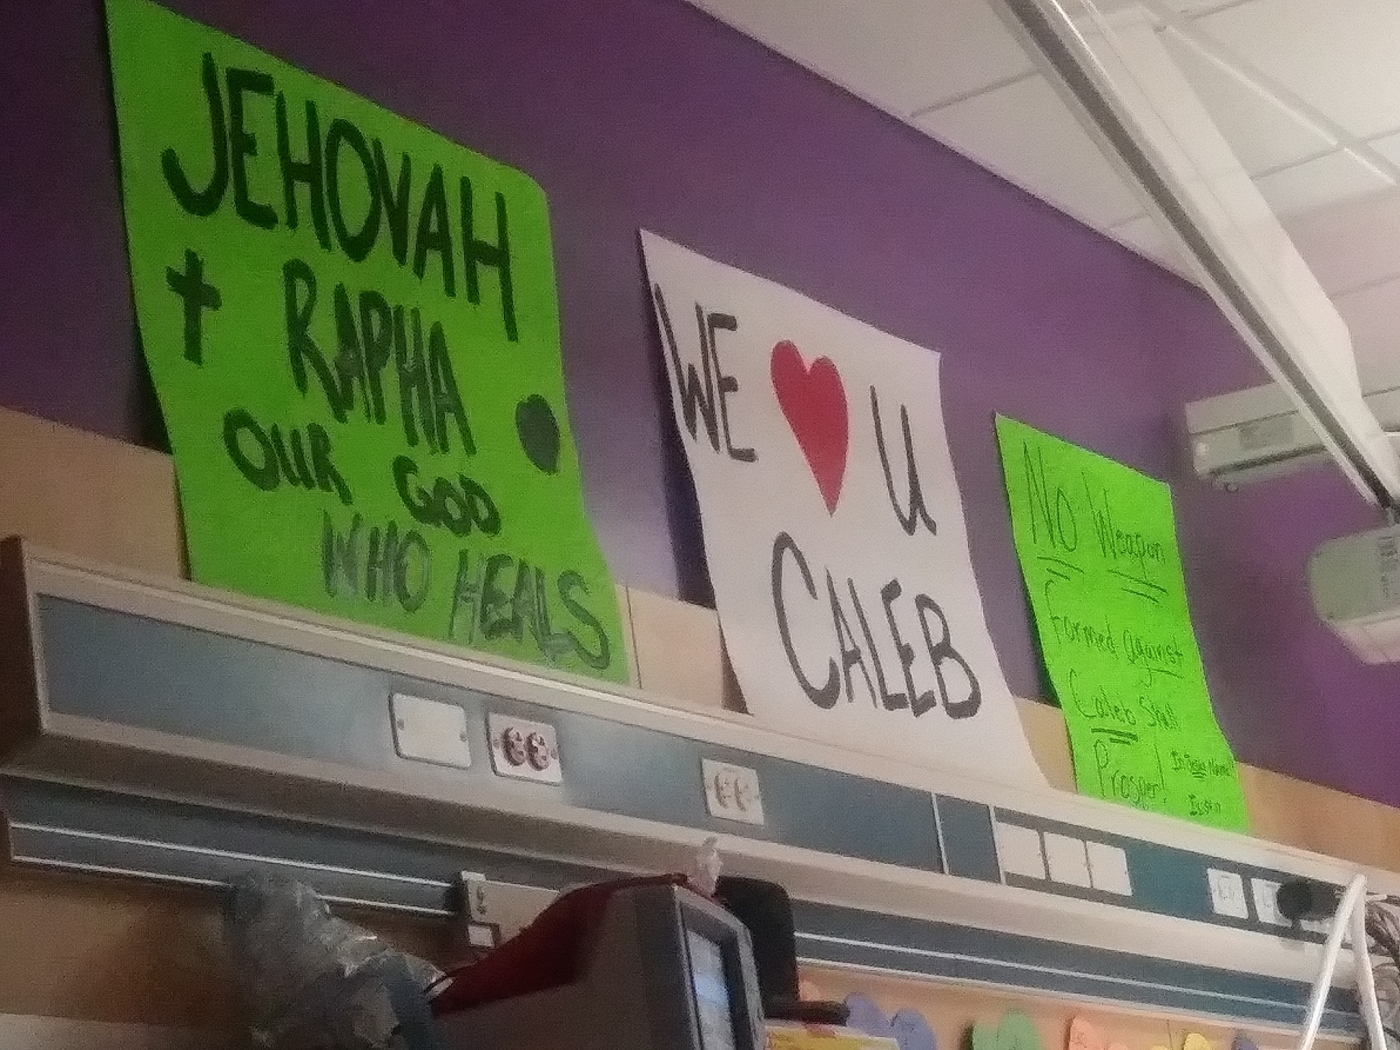 JEHOVAH
RAPHA
OUR GOD
WHO HEALS
WE U
CALEB
No Weapon
Formed against
Caleb Shall
Prosper!
In Jesus Name!